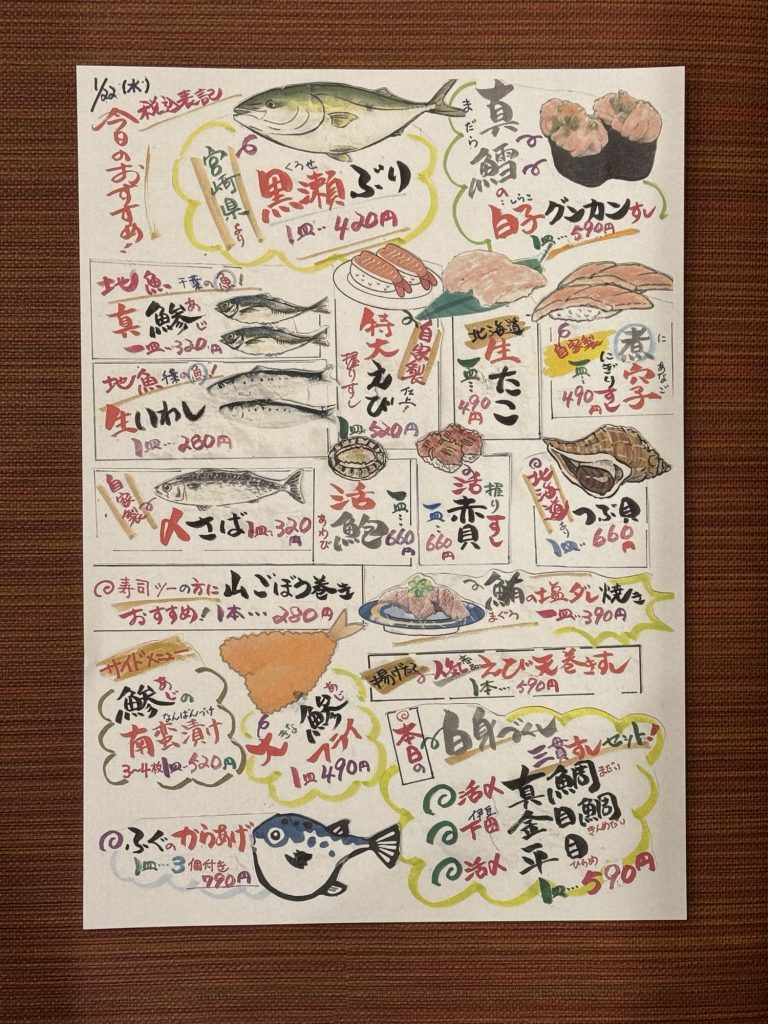 1/22(水)
税込表記
今日のおすすめ!
宮崎県より
くろせ
黒瀬ぶり
1皿…420円
まだら
真鱈の
しらこ
白子グンカンすし
1皿…590円
地魚 千葉の魚!
あじ
真鯵
一皿…320円
地魚 の魚!
生いわし
1皿…280円
自家製
〆さば 1皿…320円
自家製仕上げ
特大えび
握りすし
1皿…520円
北海道
生たこ
一皿…490円
自家製
に
煮穴子
あなご
にぎりすし
一皿…490円
活鮑
あわび
一皿…660円
活赤貝
握りすし
一皿…660円
北海道より
つぶ貝
1皿…660円
寿司ツーの方に 山ごぼう巻き
おすすめ! 1本…280円
鮪の塩ダレ焼き
まぐろ 一皿…390円
揚げたて 人気商品 えび天巻きすし
1本…590円
サイドメニュー
あじ
鯵の
なんばんづけ
南蛮漬け
3〜4枚 1皿…520円
大きな
あじ
鯵フライ
1皿 490円
ふぐのからあげ
1皿…3個付き
790円
本日の
白身づくし
三貫すしセット!
活〆 真鯛 まだい
伊豆下田 金目鯛 きんめだい
活〆 平目 ひらめ
1皿…590円